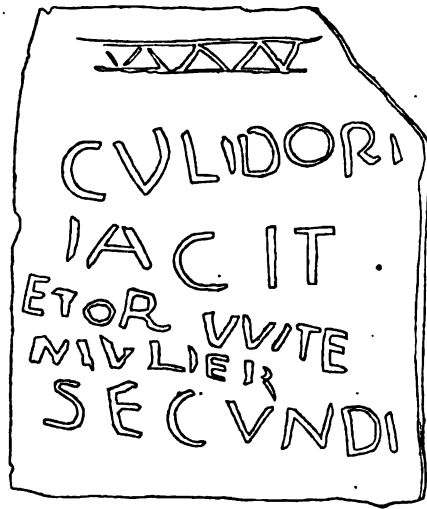 CVLIDORI
IACIT
ETOR VVITE
MVLIER
SECVNDI